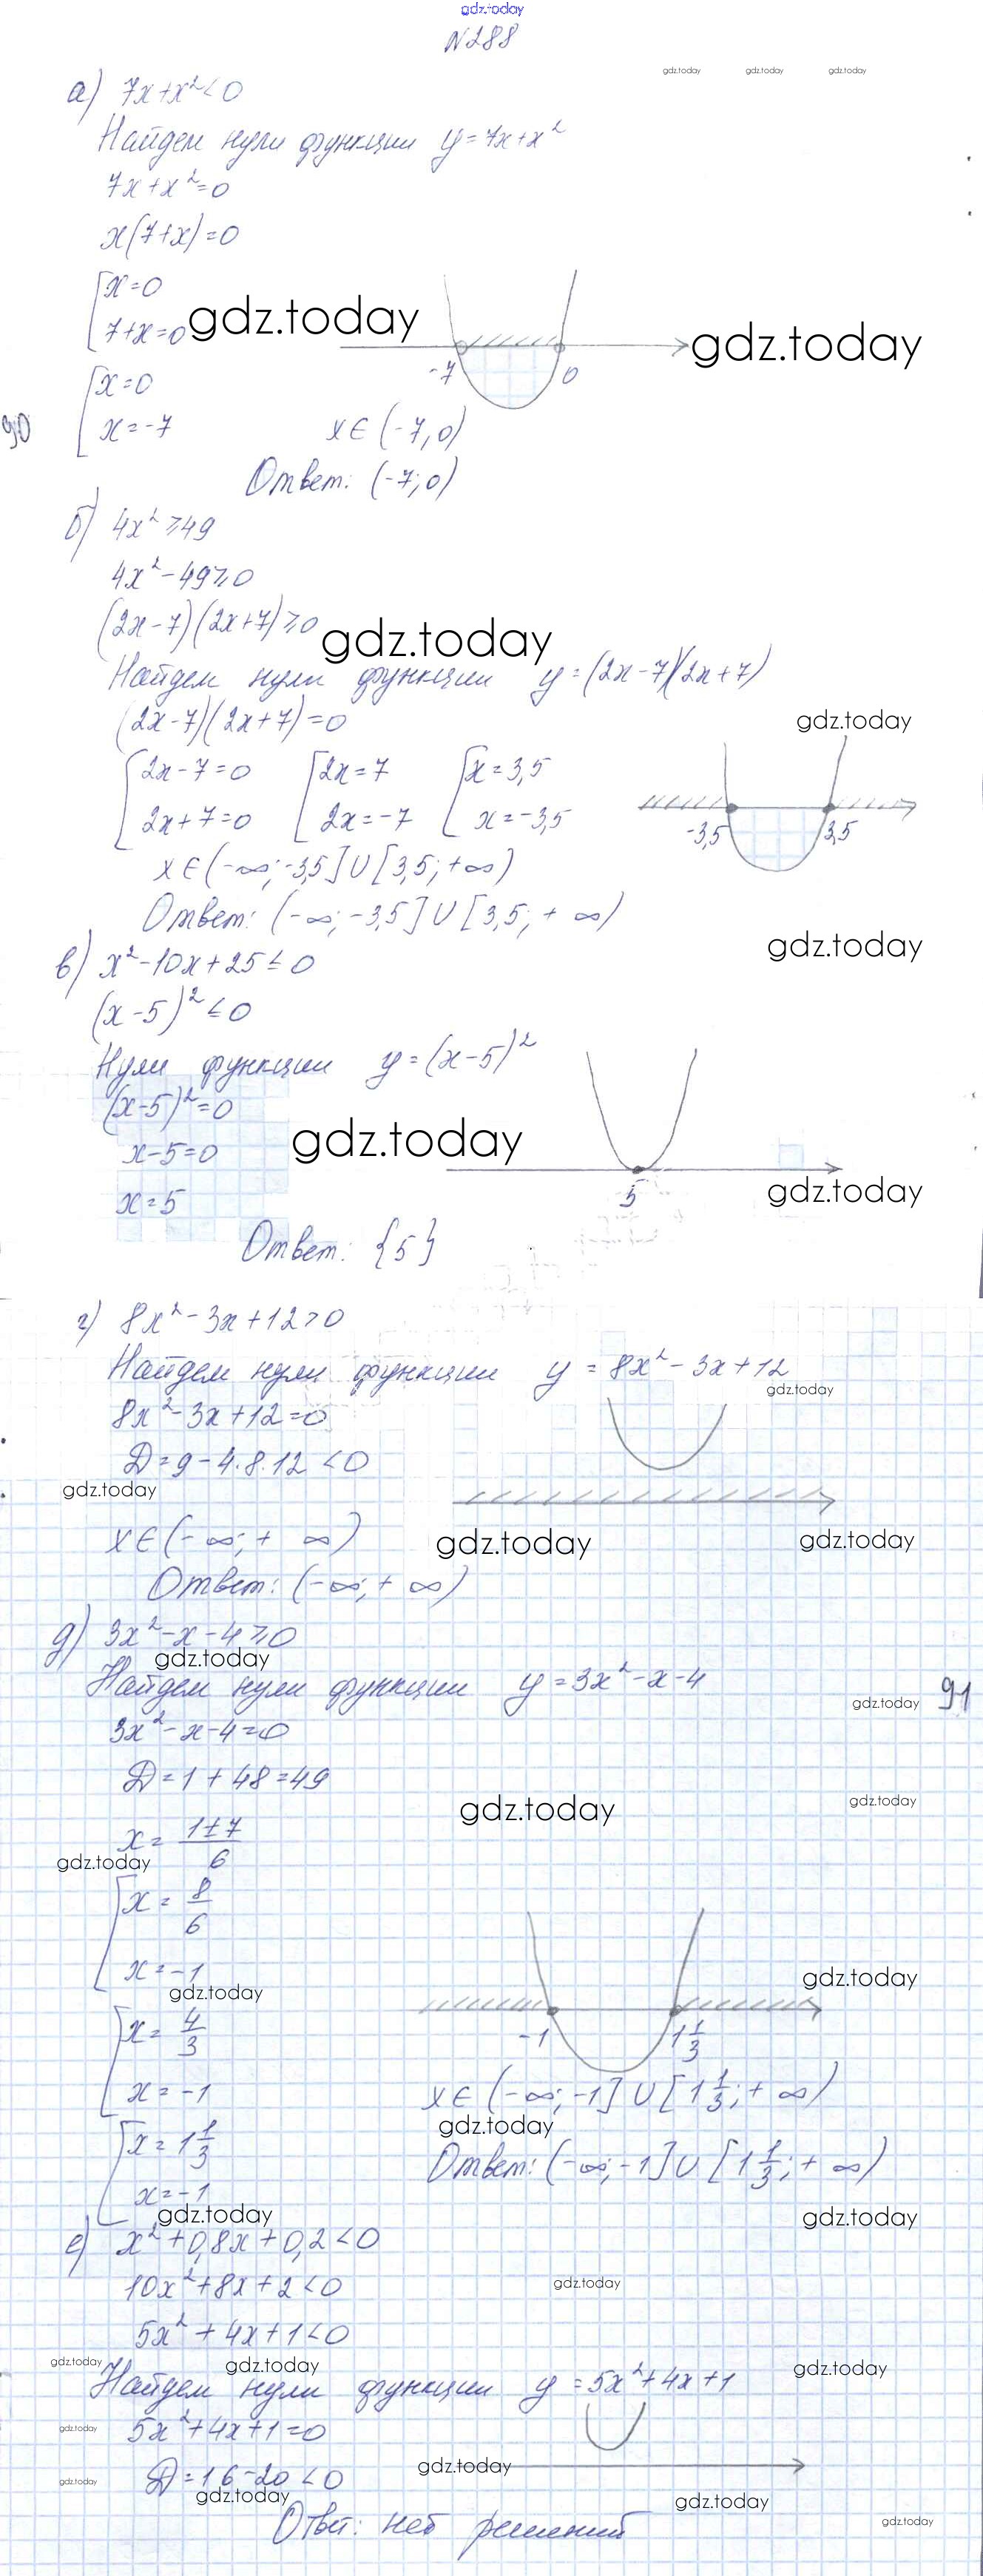 gdz.today
N288
gdz.today gdz.today gdz.today
а) 7x+x²<0
Найдем нули функции y=7x+x²
7x+x²=0
x(7+x)=0
[x=0
7+x=0 gdz.today
gdz.today
-7 0
[x=0
x=-7
90
x∈(-7;0)
Ответ: (-7;0)
б) 4x²≥49
4x²-49≥0
(2x-7)(2x+7)≥0
gdz.today
Найдем нули функции y=(2x-7)(2x+7)
(2x-7)(2x+7)=0
gdz.today
[2x-7=0 [2x=7 [x=3,5
2x+7=0 2x=-7 x=-3,5
-3,5 3,5
x∈(-∞;-3,5]∪[3,5;+∞)
Ответ: (-∞;-3,5]∪[3,5;+∞)
gdz.today
в) x²-10x+25≤0
(x-5)²≤0
Нули функции y=(x-5)²
(x-5)²=0
x-5=0
gdz.today
x=5
5
gdz.today
Ответ: {5}
г) 8x²-3x+12>0
Найдем нули функции y=8x²-3x+12
gdz.today
8x²-3x+12=0
D=9-4·8·12<0
gdz.today
x∈(-∞;+∞)
gdz.today gdz.today
Ответ: (-∞;+∞)
д) 3x²-x-4≥0
gdz.today
Найдем нули функции y=3x²-x-4
gdz.today 91
3x²-x-4=0
D=1+48=49
gdz.today gdz.today
x=(1±7)/6
gdz.today
[x=8/6
x=-1
gdz.today
gdz.today
[x=4/3
x=-1
-1 1 1/3
x∈(-∞;-1]∪[1 1/3;+∞)
gdz.today
[x=1 1/3
x=-1
Ответ: (-∞;-1]∪[1 1/3;+∞)
gdz.today gdz.today
е) x²+0,8x+0,2<0
10x²+8x+2<0
gdz.today
5x²+4x+1<0
gdz.today gdz.today gdz.today
Найдем нули функции y=5x²+4x+1
5x²+4x+1=0
gdz.today
gdz.today
D=16-20<0
gdz.today
gdz.today gdz.today
Ответ: нет решений
gdz.today